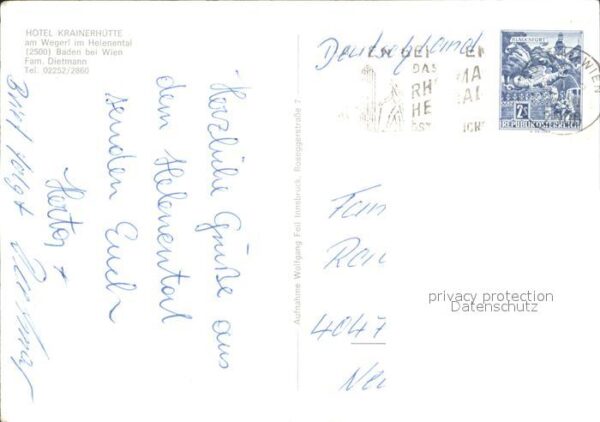 HOTEL KRAINERHÜTTE
am Wegerl im Helenental
(2500) Baden bei Wien
Fam. Dietmann
Tel. 02252/2860
Herzliche Grüße aus
dem Helenental
senden Euch
Herta +
Brief folgt
Aufnahme Wolfgang Feil Innsbruck, Roseggerstraße 7
Deutschland
KLAGENFURT
2S
REPUBLIK ÖSTERREICH
WIEN
DAS
RH
HE
Fam
4047
privacy protection
Datenschutz